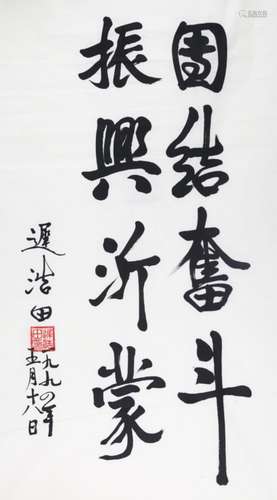 团结奮斗
振興沂蒙
遲浩田
一九九四年
五月十八日